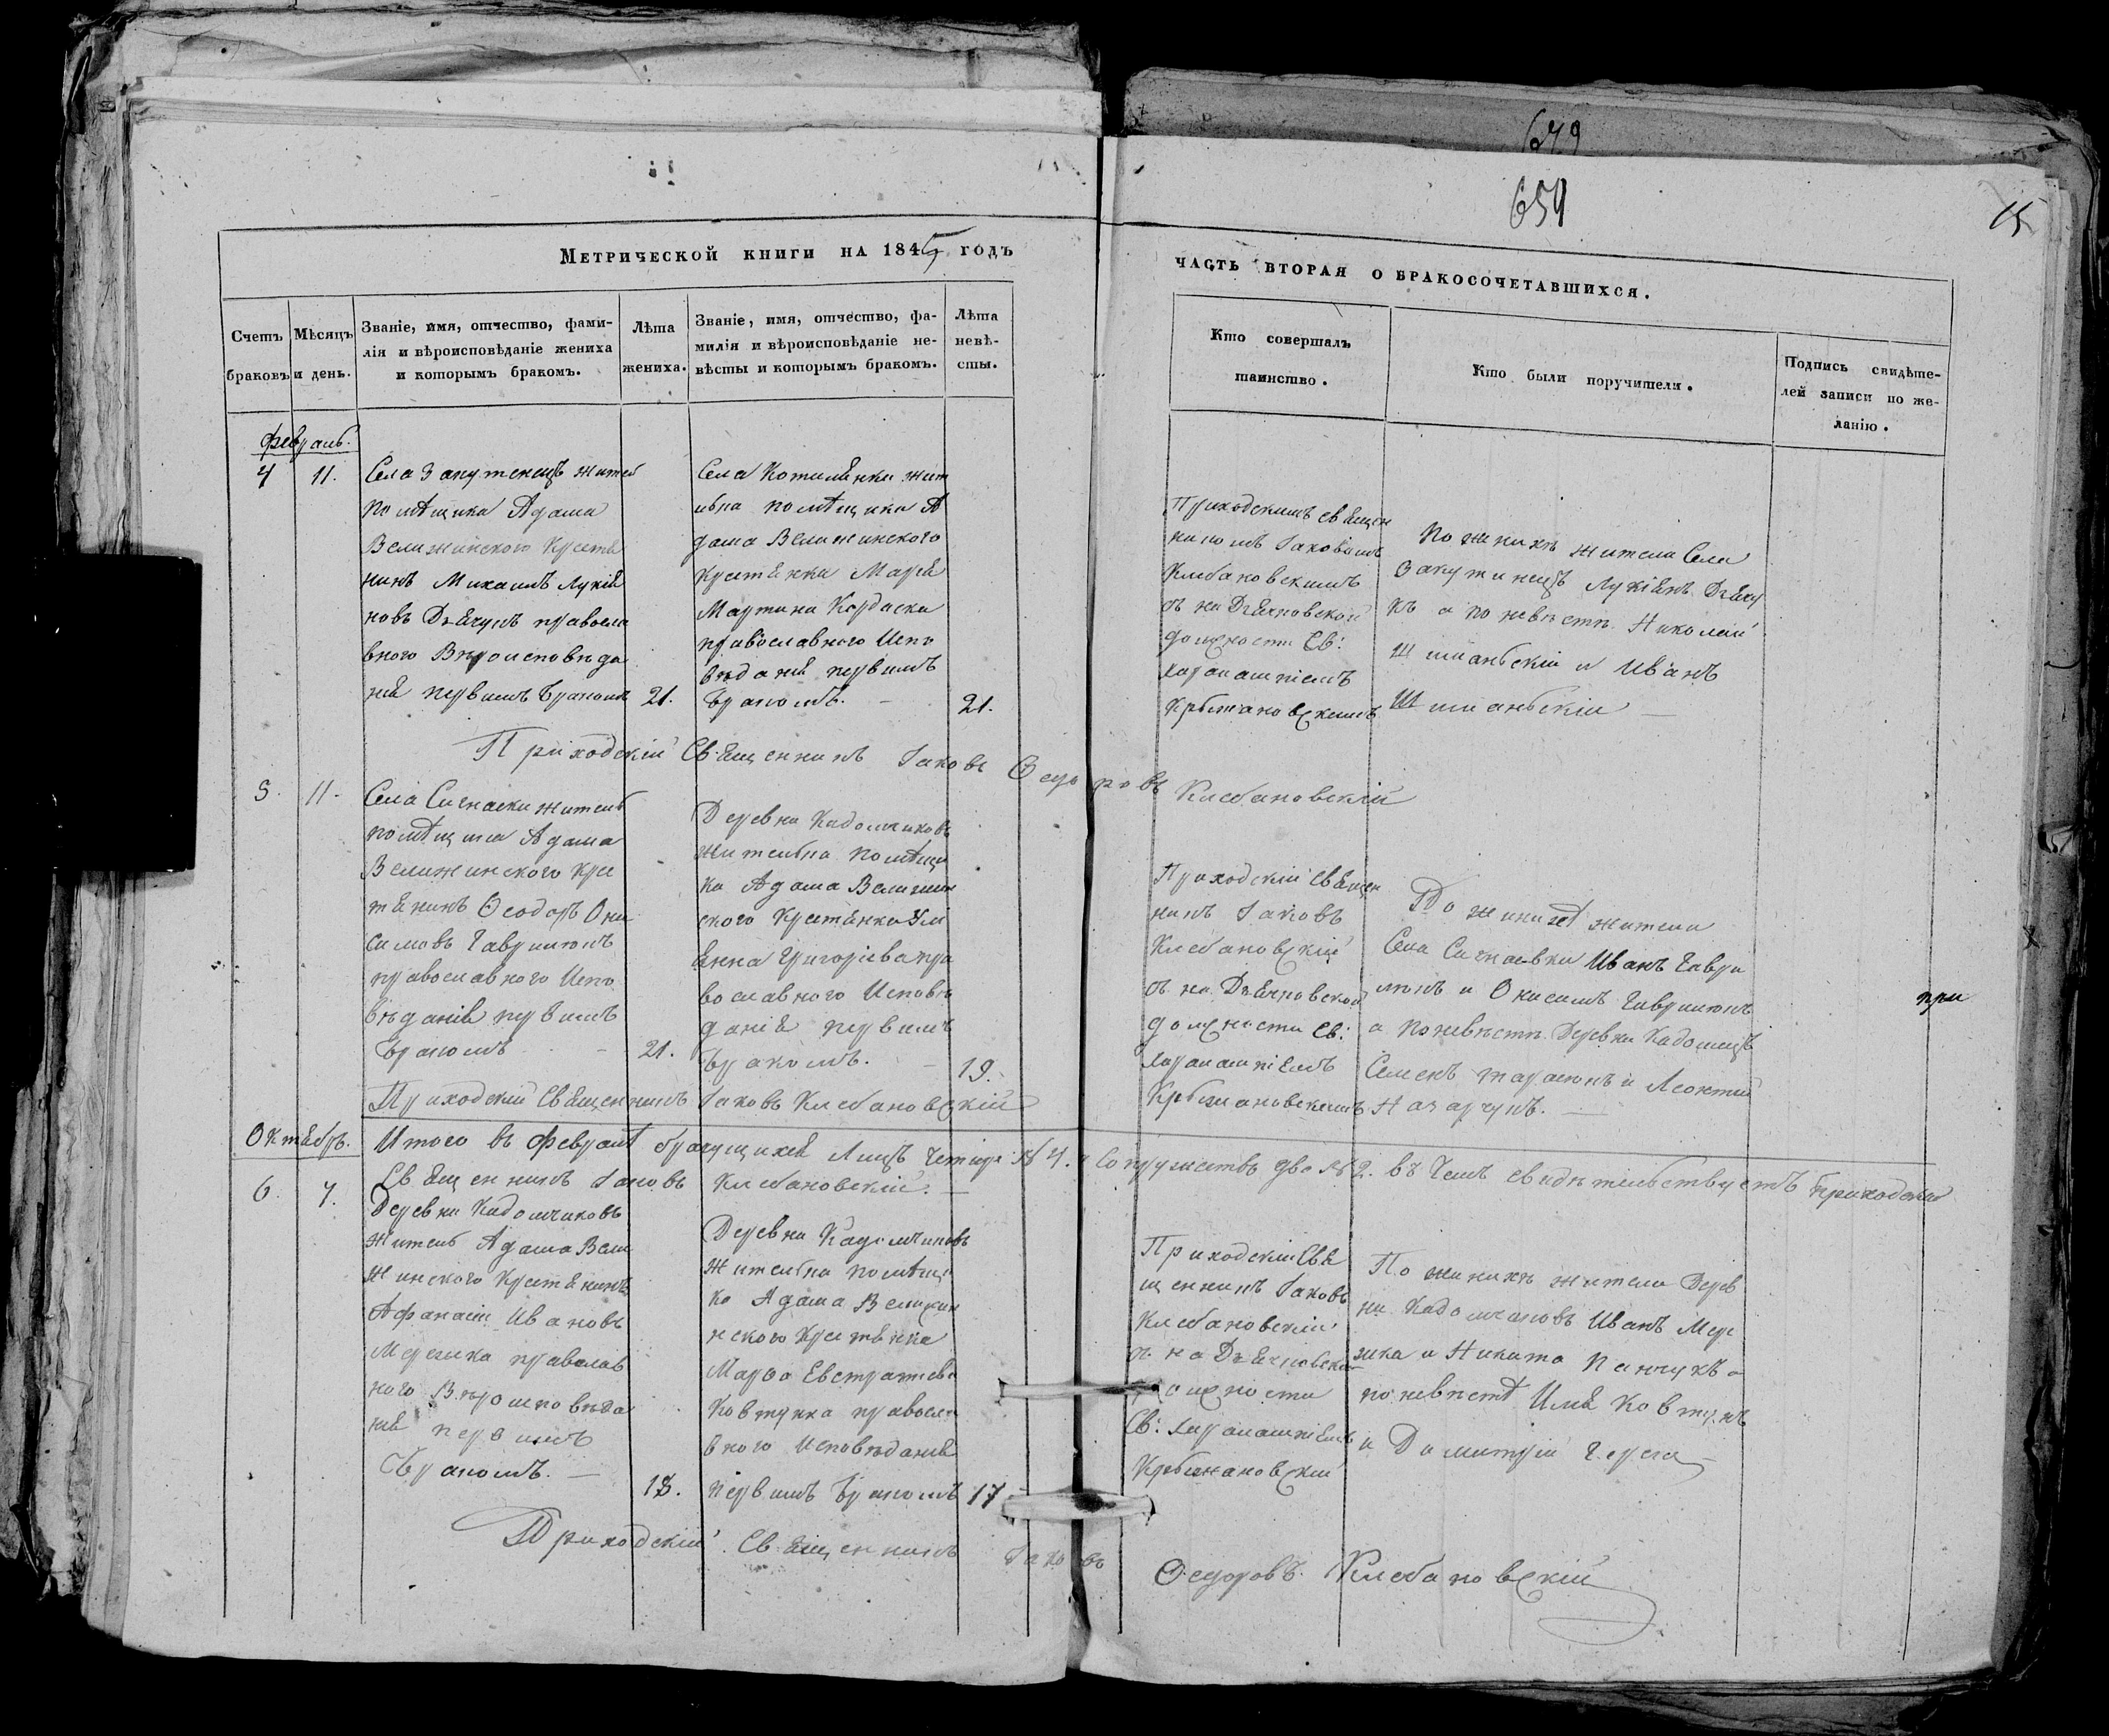 679
659
15
Метрической книги на 1845 годъ
часть вторая о бракосочетавшихся.
Счетъ браковъ
Мѣсяцъ и день.
Званіе, имя, отчество, фами-
лія и вѣроисповѣданіе жениха
и которымъ бракомъ.
Лѣта
жениха.
Званіе, имя, отчество, фа-
милія и вѣроисповѣданіе не-
вѣсты и которымъ бракомъ.
Лѣта
невѣ-
сты.
Кто совершалъ
таинство.
Кто были поручители.
Подпись свидѣте-
лей записи по же-
ланію.
Февраль.
4
11.
Села Закутенецъ жител
помѣщика Адама
Велижинского Крестя
нинъ Михаилъ Лукія
новъ Дъячукъ правосла
вного Вѣроисповѣда
нія первымъ бракомъ
21.
Села Котилянки жит
ельна помѣщика А
дама Велижинского
Крестянка Марія
Мартина Кордаски
православного Испо
вѣданія первимъ
Бракомъ.
21.
Приходскимъ священ
никомъ Іаковомъ
Клебановскимъ
съ на Дъячковской
должности Св:
Харалампіемъ
Крыжановскимъ
По женихѣ жители Села
Закутинецъ Лукіянъ Дъячу
къ а по невѣстѣ Николай
Шиманьскій и Иванъ
Шиманьскій
Приходскій Священникъ Іаковъ Ѳедоровъ Клебановскій
5.
11.
Села Сигнаеки житель
помѣщика Адама
Велижинского Кре
тянинъ Ѳеодоръ Они
симовъ Гаврилюкъ
православного Испо
вѣданія первимъ
Бракомъ
21.
Деревни Кадомчиковъ
жительна помѣщи
ка Адама Велижин
ского Крестянка Улі
янна Григоріева пра
вославного Исповѣ
данія первимъ
бракомъ.
19.
Приходскій священ
никъ Іаковъ
Клебановскій
съ на Дъячковской
должности Св:
Харалампіемъ
Крыжановскимъ
По женихѣ жители
Села Сигнаевки Иванъ Гаври
люкъ и Онисимъ Гаврилюкъ
а по невѣстѣ Деревни Кадомецъ
Семенъ Тарасюкъ и Леонтий
Назарчукъ.
при
Приходскій Священникъ Іаковъ Клебановскій
Октябрь.
Итого въ Февралѣ брачущихся Лицъ четире № 4. и Сопружествъ два № 2. въ Чемъ свидѣтельствуетъ приходскій
Священникъ Іаковъ Клебановскій.
6.
7.
Деревни Кадомчиковъ
житель Адама Вели
жинского Крестянинъ
Афанасій Ивановъ
Мережка православ
ного Вѣроисповѣда
нія первимъ
Бракомъ.
18.
Деревни Кадомчиковъ
жительна помѣщи
ка Адама Велижин
нского Крестянка
Марѳа Евстратіева
Ковтунка правосла
вного исповѣданія
первимъ Бракомъ
17
Приходскій Свя
щенникъ Іаковъ
Клебановскій
съ на Дъячковской
должности
Св: Харалампіемъ
Крыжановскій
По женихѣ жители Дерев
ни Кадомчиковъ Иванъ Мере
жка и Никита Панчукъ а
по невѣстѣ Илія Ковтунъ
и Димитрій Черега
Приходскій Священникъ Іаковъ Ѳедоровъ Клебановскій